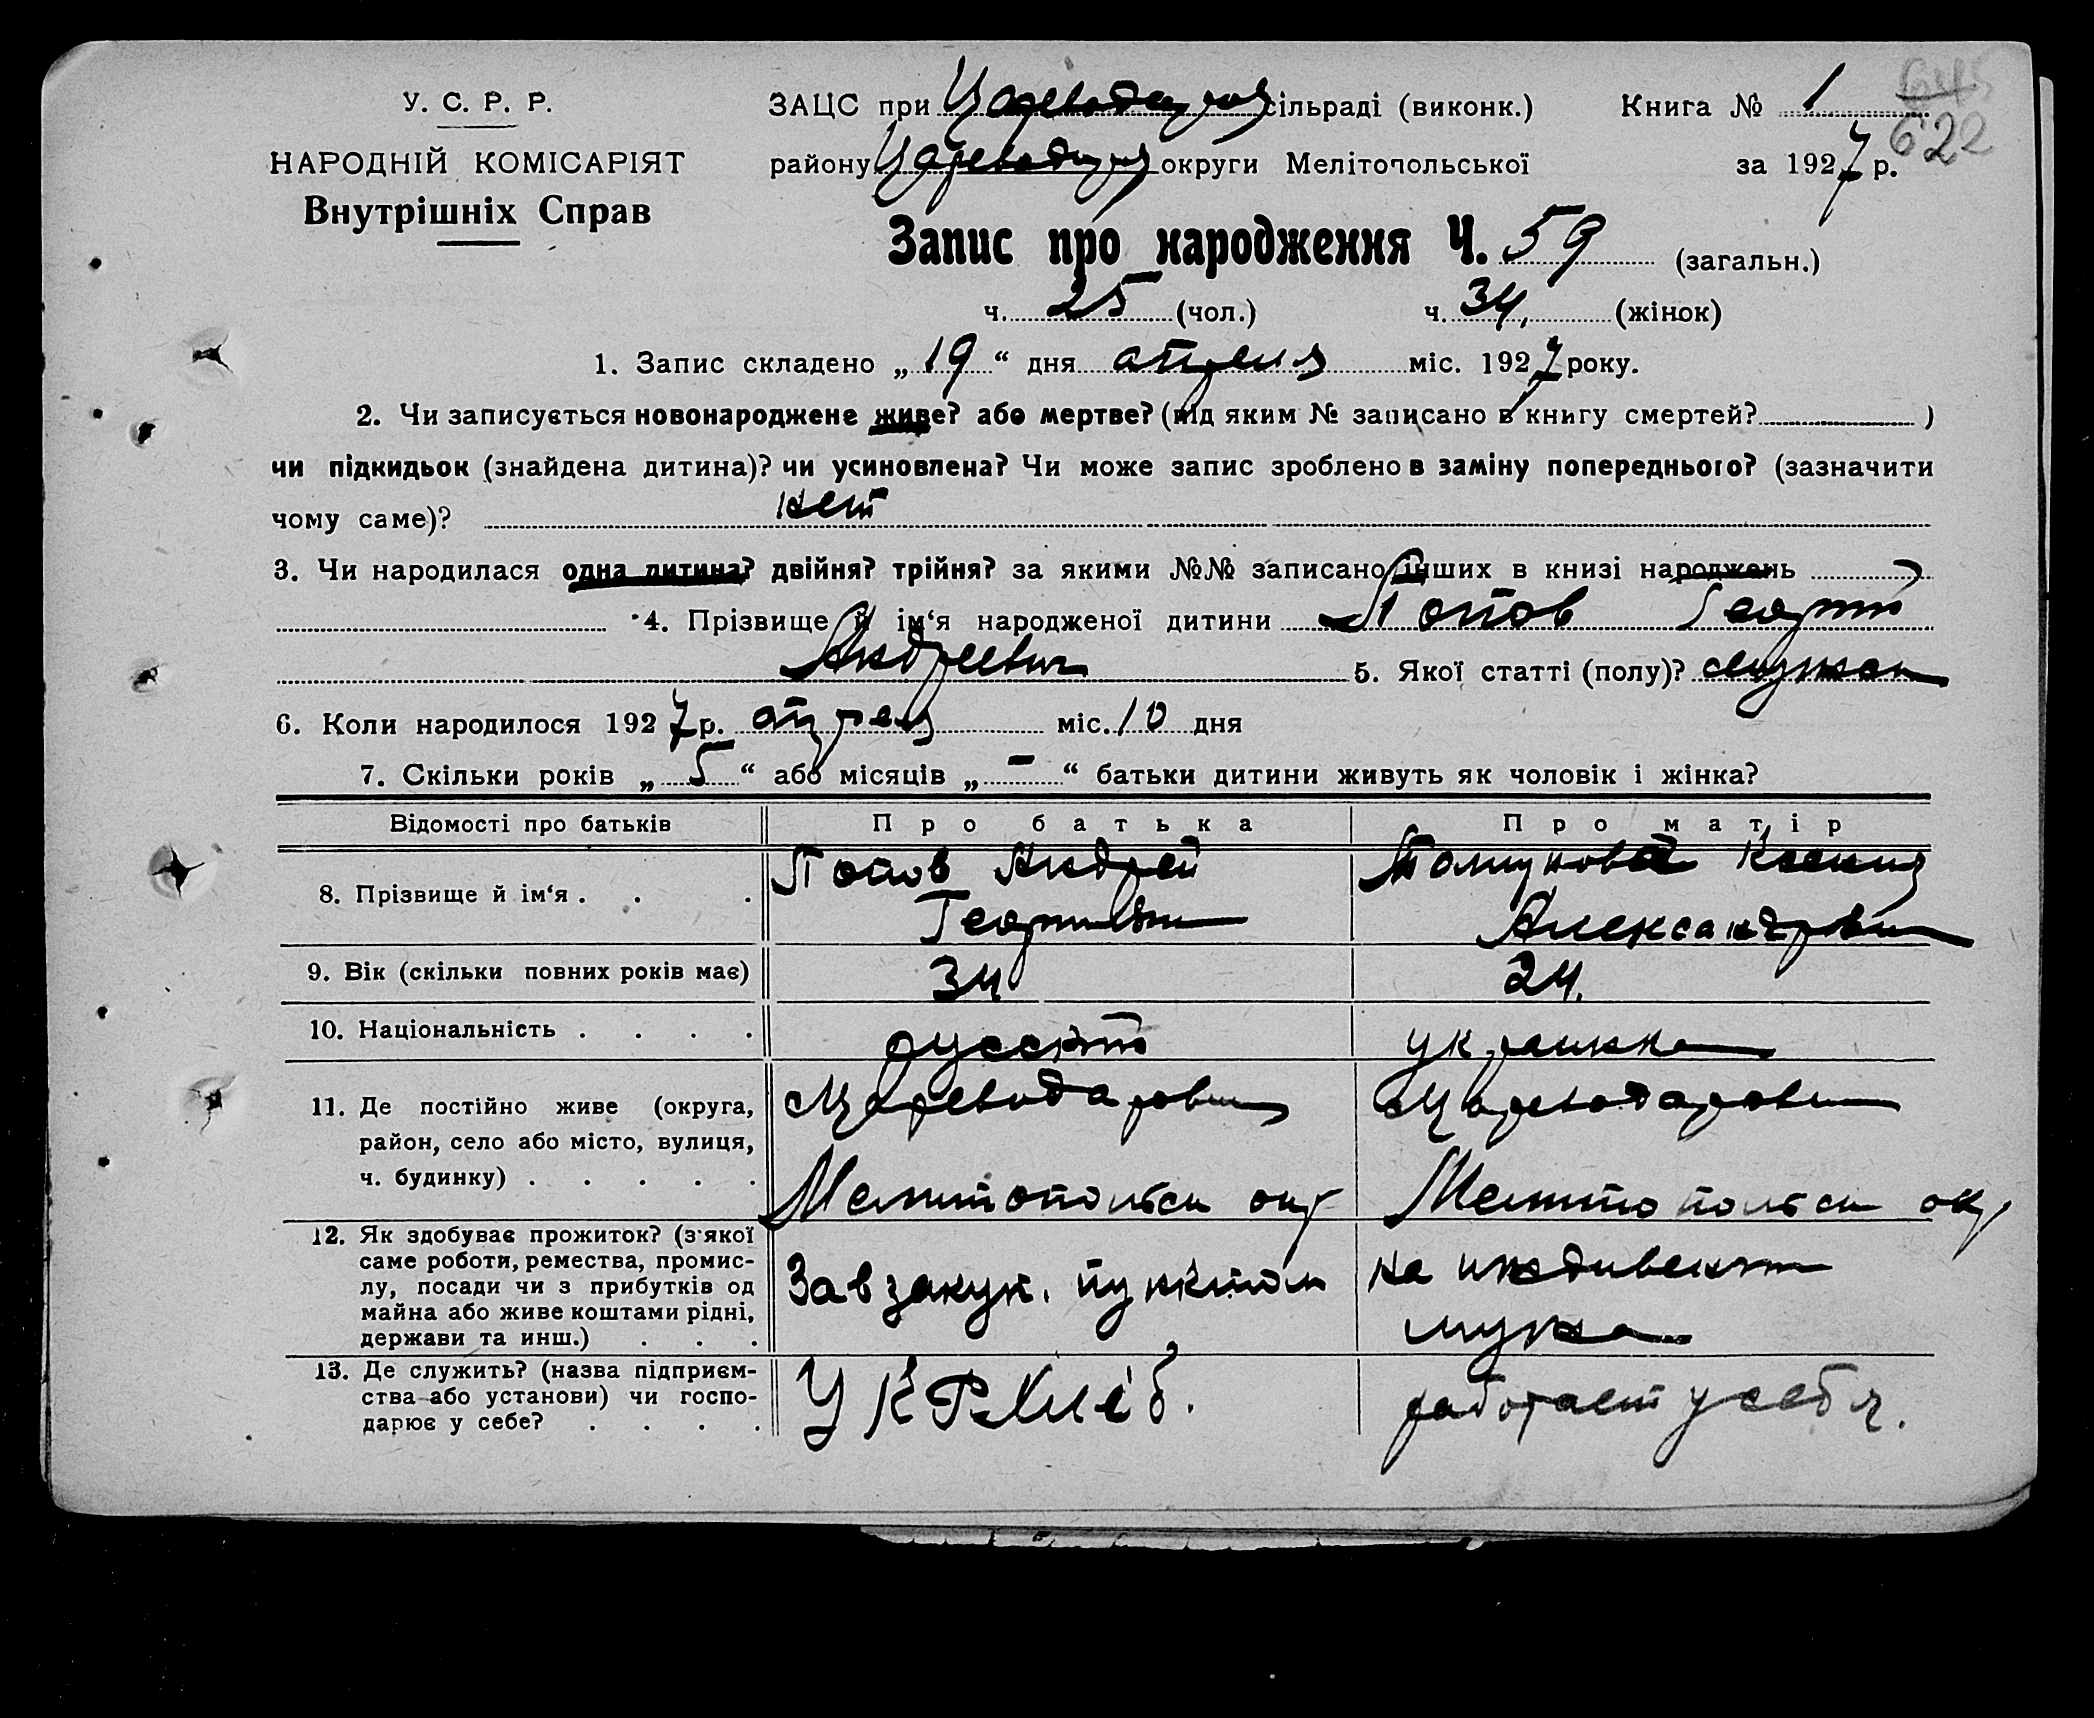 У. С. Р. Р.
НАРОДНІЙ КОМІСАРІЯТ
Внутрішніх Справ
ЗАЦС при сільраді (виконк.) Книга № 1
645
622
району округи Мелітопольської за 1927 р.
Запис про народження Ч. 59 (загальн.)
ч. 25 (чол.) ч. 34. (жінок)
1. Запис складено „ 19 “ дня апреля міс. 1927 року.
2. Чи записується новонароджене живе? або мертве? (під яким № записано в книгу смертей? )
чи підкидьок (знайдена дитина)? чи усиновлена? Чи може запис зроблено в заміну попереднього? (зазначити
чому саме)? нет
3. Чи народилася одна дитина? двійня? трійня? за якими №№ записано інших в книзі народжень
4. Прізвище й ім‘я народженої дитини Попов Георгий
Андреевич 5. Якої статті (полу)? мужск
6. Коли народилося 1927 р. апреля міс. 10 дня
7. Скільки років „ 5 “ або місяців „ – “ батьки дитини живуть як чоловік і жінка?
Відомості про батьків Про батька Про матір
8. Прізвище й ім‘я . . . Попов Андрей Ксения
Георгиевич Александровн
9. Вік (скільки повних років має) 34 24.
10. Національність . . . . русский украинка
11. Де постійно живе (округа,
район, село або місто, вулиця,
ч. будинку) . . . . . Мелитопольск окр Мелитопольск окр
12. Як здобуває прожиток? (з‘якої
саме роботи, ремества, промис-
лу, посади чи з прибутків од
майна або живе коштами рідні,
держави та инш.) . . .
Зав закуп. пунктом на иждивении
мужа
13. Де служить? (назва підприєм-
ства або установи) чи госпо-
дарює у себе? . . . .
УКРХлеб. работает у себя.